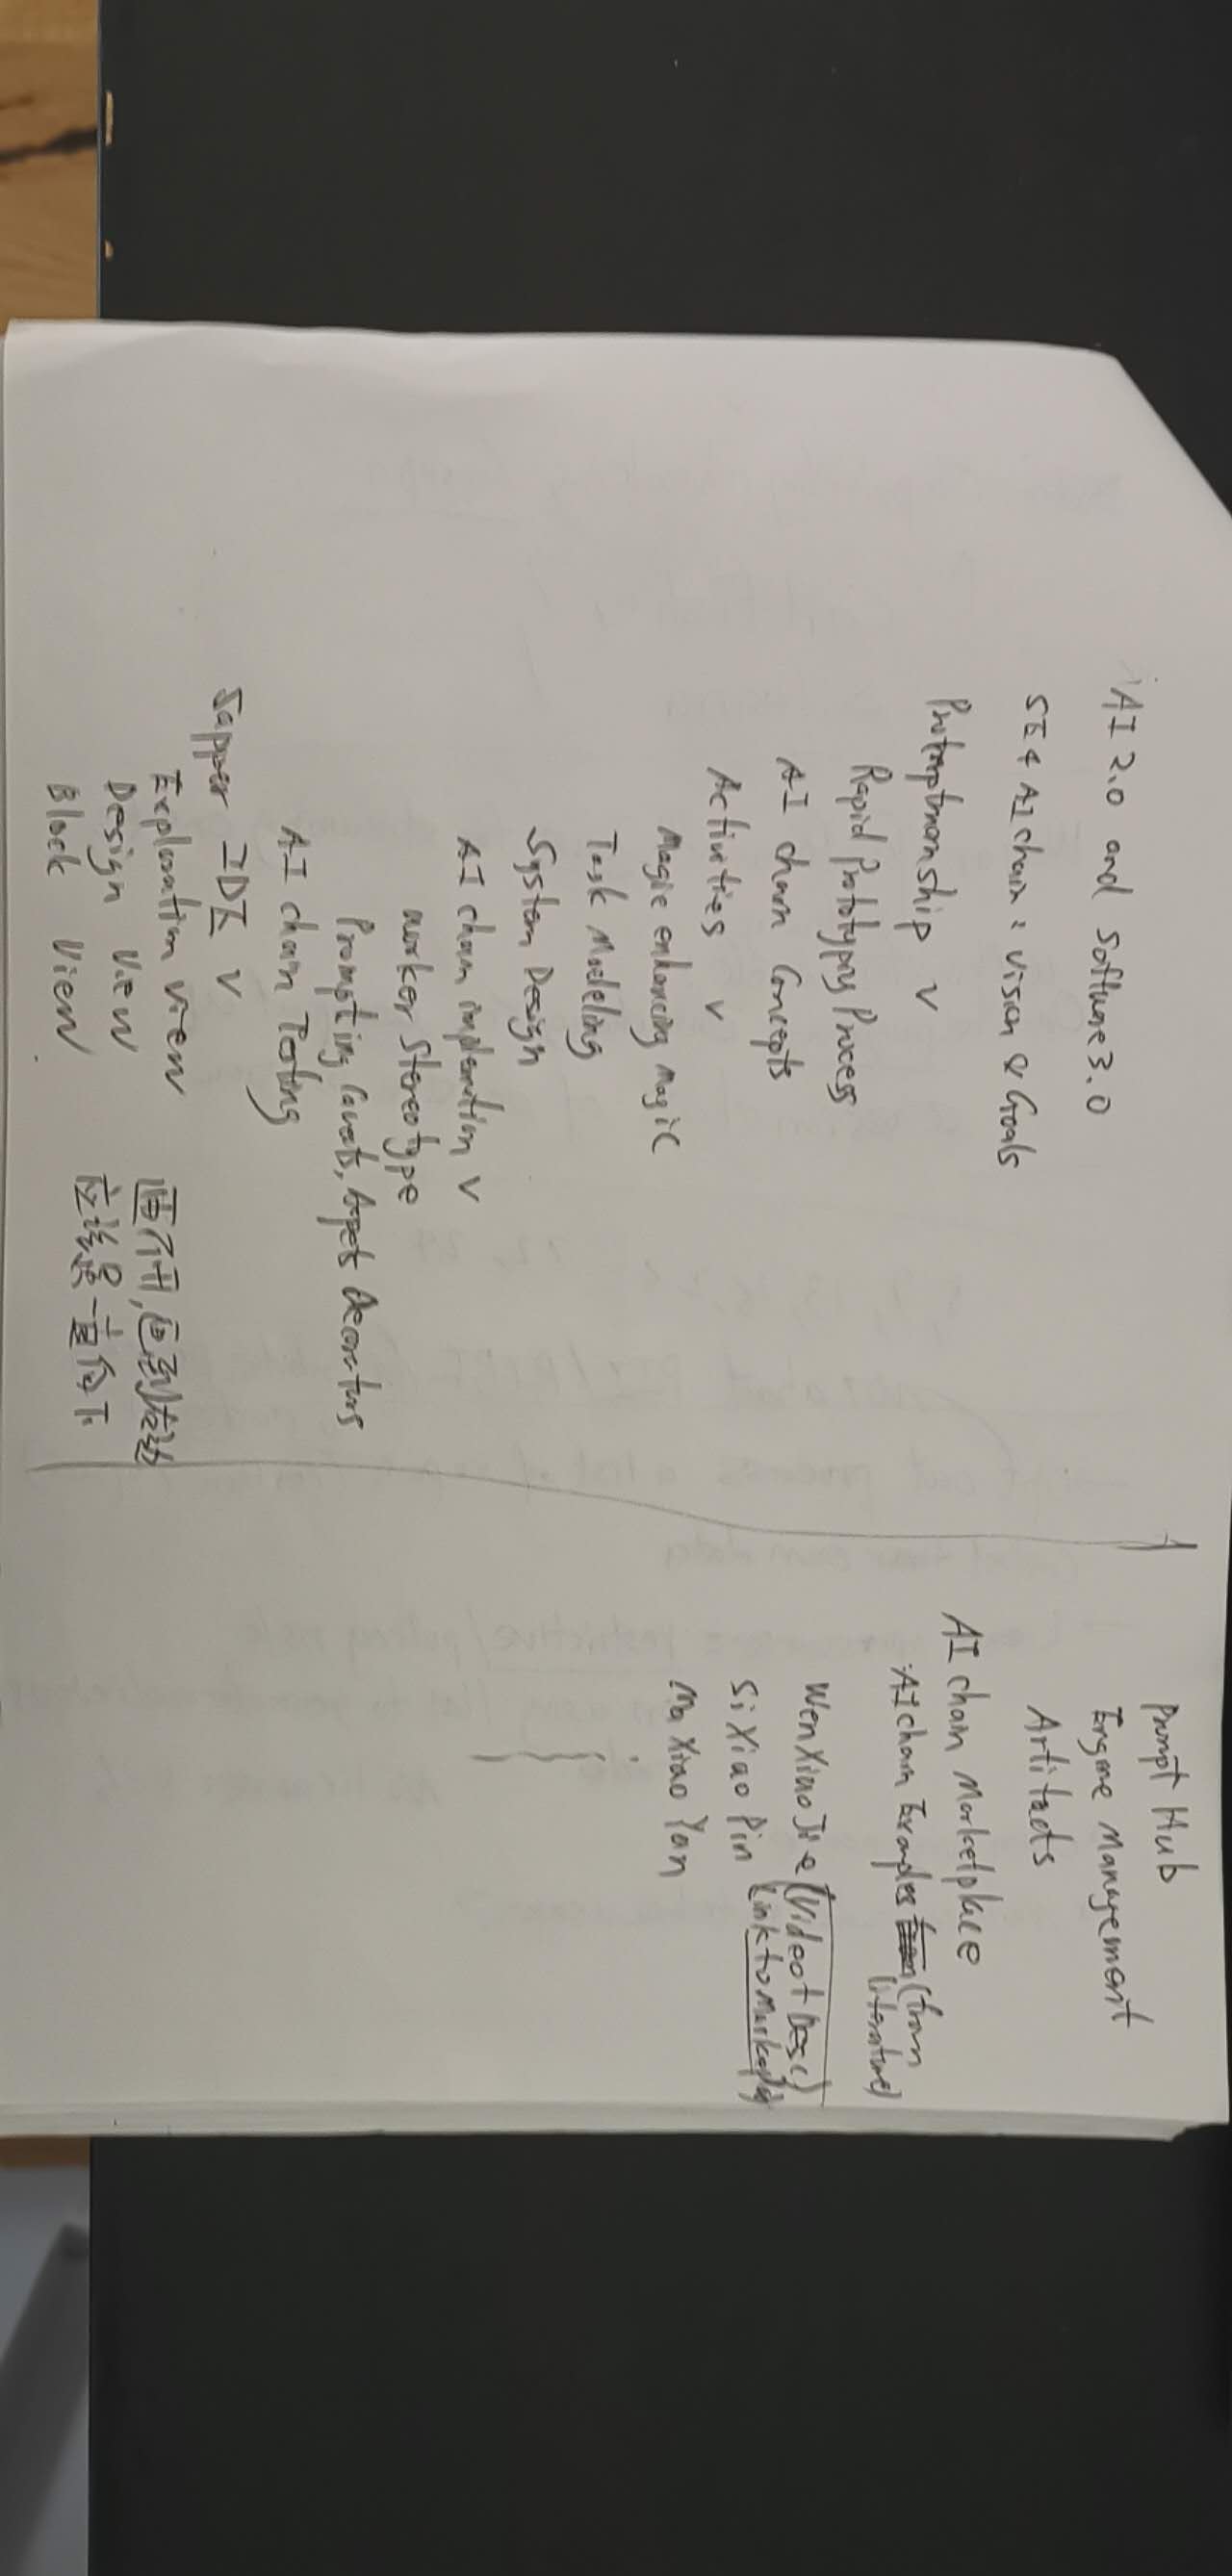 AI 2.0 and Software 3.0
SE4AIchain: Vision & Goals
Promptmanship v
Rapid Prototyping Process
AI chain Concepts
Activities v
Magic enhancing magic
Task Modeling
System Design
AI chain v
worker Stereotype
Prompting
AI chain Testing
Sapper IDE v
Exploration view
Design View
Block View
画不开,画到右边
应该是一直向下
Prompt Hub
Engine Management
Artifacts
AI chain Marketplace
AI chain Examples (from
literature)
WenXiaoJie (Video + Desc)
Link to
Si Xiao Pin
Ma Xiao Yan